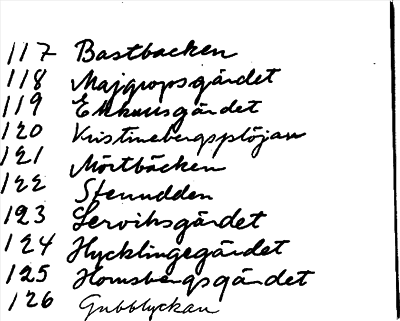 117 Bastbacken
118 Majgropsgärdet
119 Ekhusgärdet
120 Kristinebergsplöjan
121 Mörtbäcken
122 Stenudden
123 Lerviksgärdet
124 Hycklingegärdet
125 Homsbergsgärdet
126 Gubblyckan